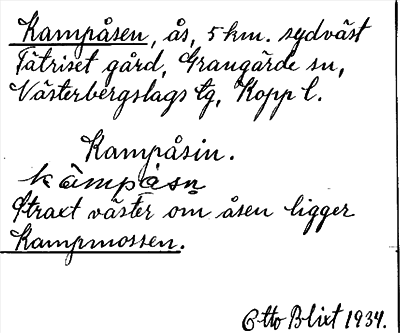 Kampåsen, ås, 5 km. sydväst
Tätriset gård, Grangärde sn,
Västerbergslags tg, Kopp l.
Kampåsin.
kàmpåsn
Straxt väster om åsen ligger
Kampmossen.
Otto Blixt 1934.